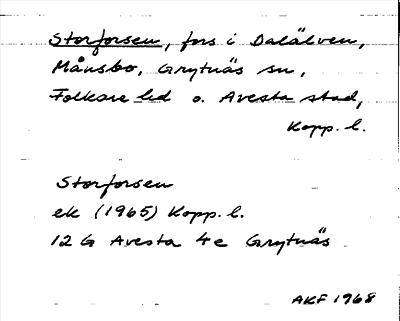 Storforsen, fors i Dalälven,
Månsbo, Grytnäs sn,
Folkare hd o. Avesta stad,
Kopp. l.
Storforsen
ek (1965) Kopp. l.
12 G Avesta 4e Grytnäs
AKF 1968